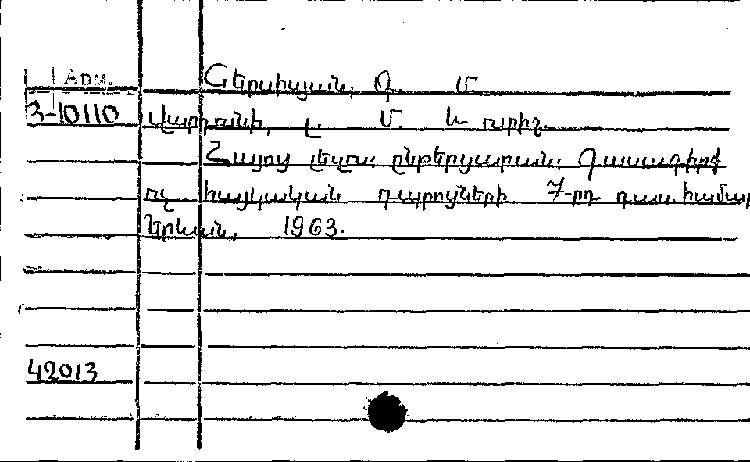 Арм.
Ներսիսյան, Գ. Մ.
3-10110 Վարդանի, Լ. Մ. և ուրիշ.
Հայոց լեզու. ընթերցարան. Դասագիրք
ոչ հայկական դպրոցների 7-րդ դաս. համար
Երևան, 1963.
42013